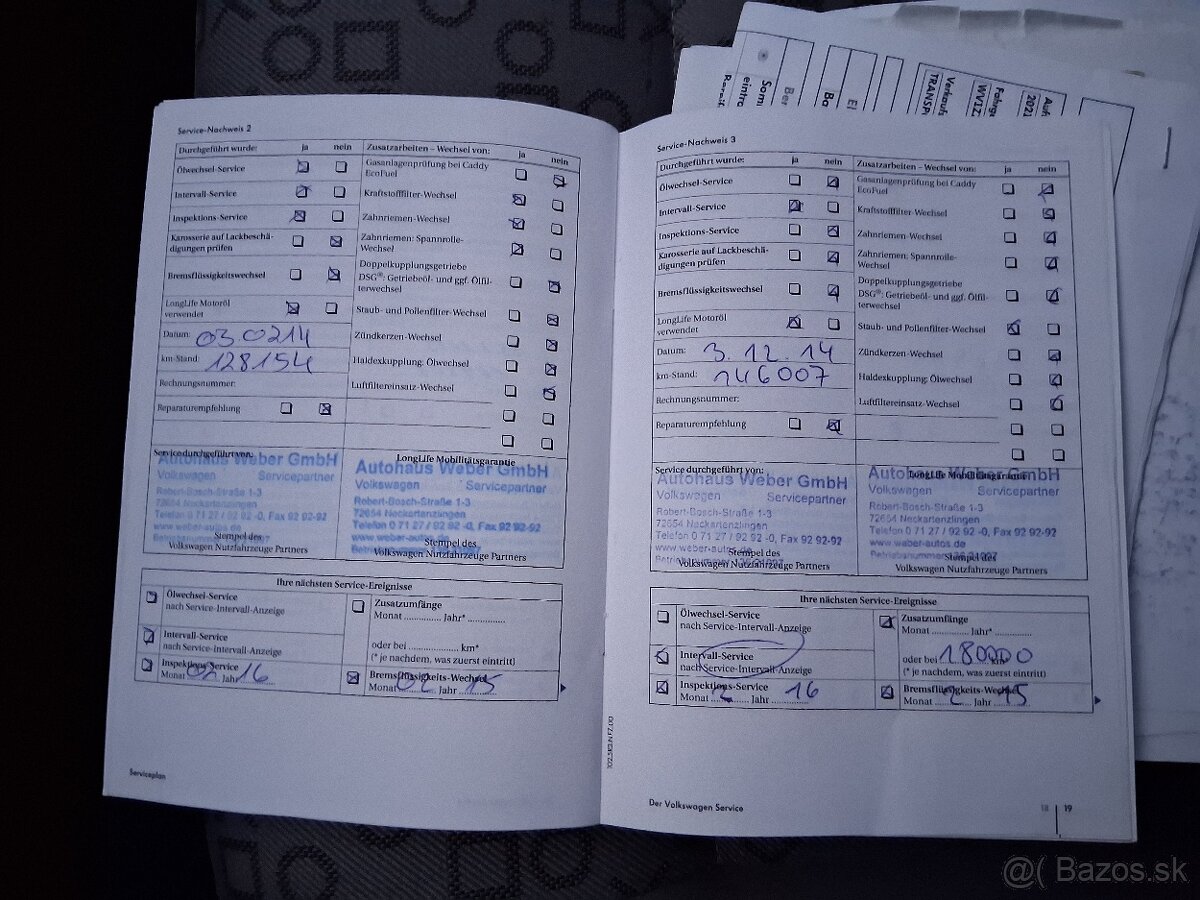 Service-Nachweis 2
Durchgeführt wurde: ja nein
Ölwechsel-Service
Intervall-Service
Inspektions-Service
Karosserie auf Lackbeschä-
digungen prüfen
Bremsflüssigkeitswechsel
LongLife Motoröl
verwendet
Datum: 03.0214
km-Stand: 128154
Rechnungsnummer:
Reparaturempfehlung
Zusatzarbeiten – Wechsel von: ja nein
Gasanlagenprüfung bei Caddy
EcoFuel
Kraftstofffilter-Wechsel
Zahnriemen-Wechsel
Zahnriemen: Spannrolle-
Wechsel
Doppelkupplungsgetriebe
DSG®: Getriebeöl- und ggf. Ölfil-
terwechsel
Staub- und Pollenfilter-Wechsel
Zündkerzen-Wechsel
Haldexkupplung: Ölwechsel
Luftfiltereinsatz-Wechsel
Service durchgeführt von:
Autohaus Weber GmbH
Volkswagen Servicepartner
Robert-Bosch-Straße 1-3
72654 Neckartenzlingen
Telefon 0 71 27 / 92 92 -0, Fax 92 92-92
www.weber-autos.de
Stempel des
Volkswagen Nutzfahrzeuge Partners
LongLife Mobilitätsgarantie
Autohaus Weber GmbH
Volkswagen Servicepartner
Robert-Bosch-Straße 1-3
72654 Neckartenzlingen
Telefon 0 71 27 / 92 92 -0, Fax 92 92-92
www.weber-autos.de
Stempel des
Volkswagen Nutzfahrzeuge Partners
Ihre nächsten Service-Ereignisse
Ölwechsel-Service
nach Service-Intervall-Anzeige
Intervall-Service
nach Service-Intervall-Anzeige
Inspektions-Service
Monat 02 Jahr 16
Zusatzumfänge
Monat ............. Jahr* .............
oder bei ............. km*
(* je nachdem, was zuerst eintritt)
Bremsflüssigkeits-Wechsel
Monat 02 Jahr 15
Serviceplan
Service-Nachweis 3
Durchgeführt wurde: ja nein
Ölwechsel-Service
Intervall-Service
Inspektions-Service
Karosserie auf Lackbeschä-
digungen prüfen
Bremsflüssigkeitswechsel
LongLife Motoröl
verwendet
Datum: 3.12.14
km-Stand: 146007
Rechnungsnummer:
Reparaturempfehlung
Zusatzarbeiten – Wechsel von: ja nein
Gasanlagenprüfung bei Caddy
EcoFuel
Kraftstofffilter-Wechsel
Zahnriemen-Wechsel
Zahnriemen: Spannrolle-
Wechsel
Doppelkupplungsgetriebe
DSG®: Getriebeöl- und ggf. Ölfil-
terwechsel
Staub- und Pollenfilter-Wechsel
Zündkerzen-Wechsel
Haldexkupplung: Ölwechsel
Luftfiltereinsatz-Wechsel
Service durchgeführt von:
Autohaus Weber GmbH
Volkswagen Servicepartner
Robert-Bosch-Straße 1-3
72654 Neckartenzlingen
Telefon 0 71 27 / 92 92 -0, Fax 92 92-92
www.weber-autos.de
Stempel des
Volkswagen Nutzfahrzeuge Partners
LongLife Mobilitätsgarantie
Autohaus Weber GmbH
Volkswagen Servicepartner
Robert-Bosch-Straße 1-3
72654 Neckartenzlingen
Telefon 0 71 27 / 92 92 -0, Fax 92 92-92
www.weber-autos.de
Stempel des
Volkswagen Nutzfahrzeuge Partners
Ihre nächsten Service-Ereignisse
Ölwechsel-Service
nach Service-Intervall-Anzeige
Intervall-Service
nach Service-Intervall-Anzeige
Inspektions-Service
Monat 2 Jahr 16
Zusatzumfänge
Monat ............. Jahr* .............
oder bei 180000 km*
(* je nachdem, was zuerst eintritt)
Bremsflüssigkeits-Wechsel
Monat 2 Jahr 15
Der Volkswagen Service
18 19
Bazos.sk